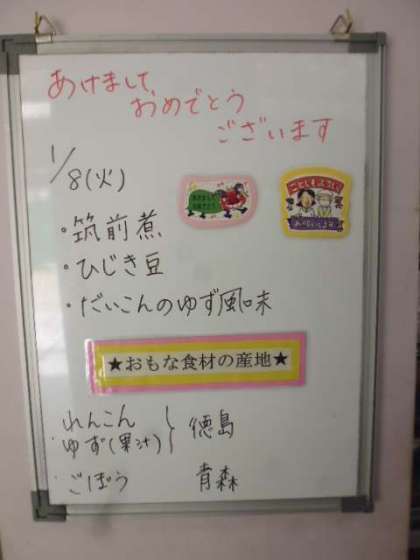 あけまして
おめでとう
ございます
1/8(火)
・筑前煮
・ひじき豆
・だいこんのゆず風味
★おもな食材の産地★
れんこん
ゆず(果汁) } 徳島
ごぼう 青森